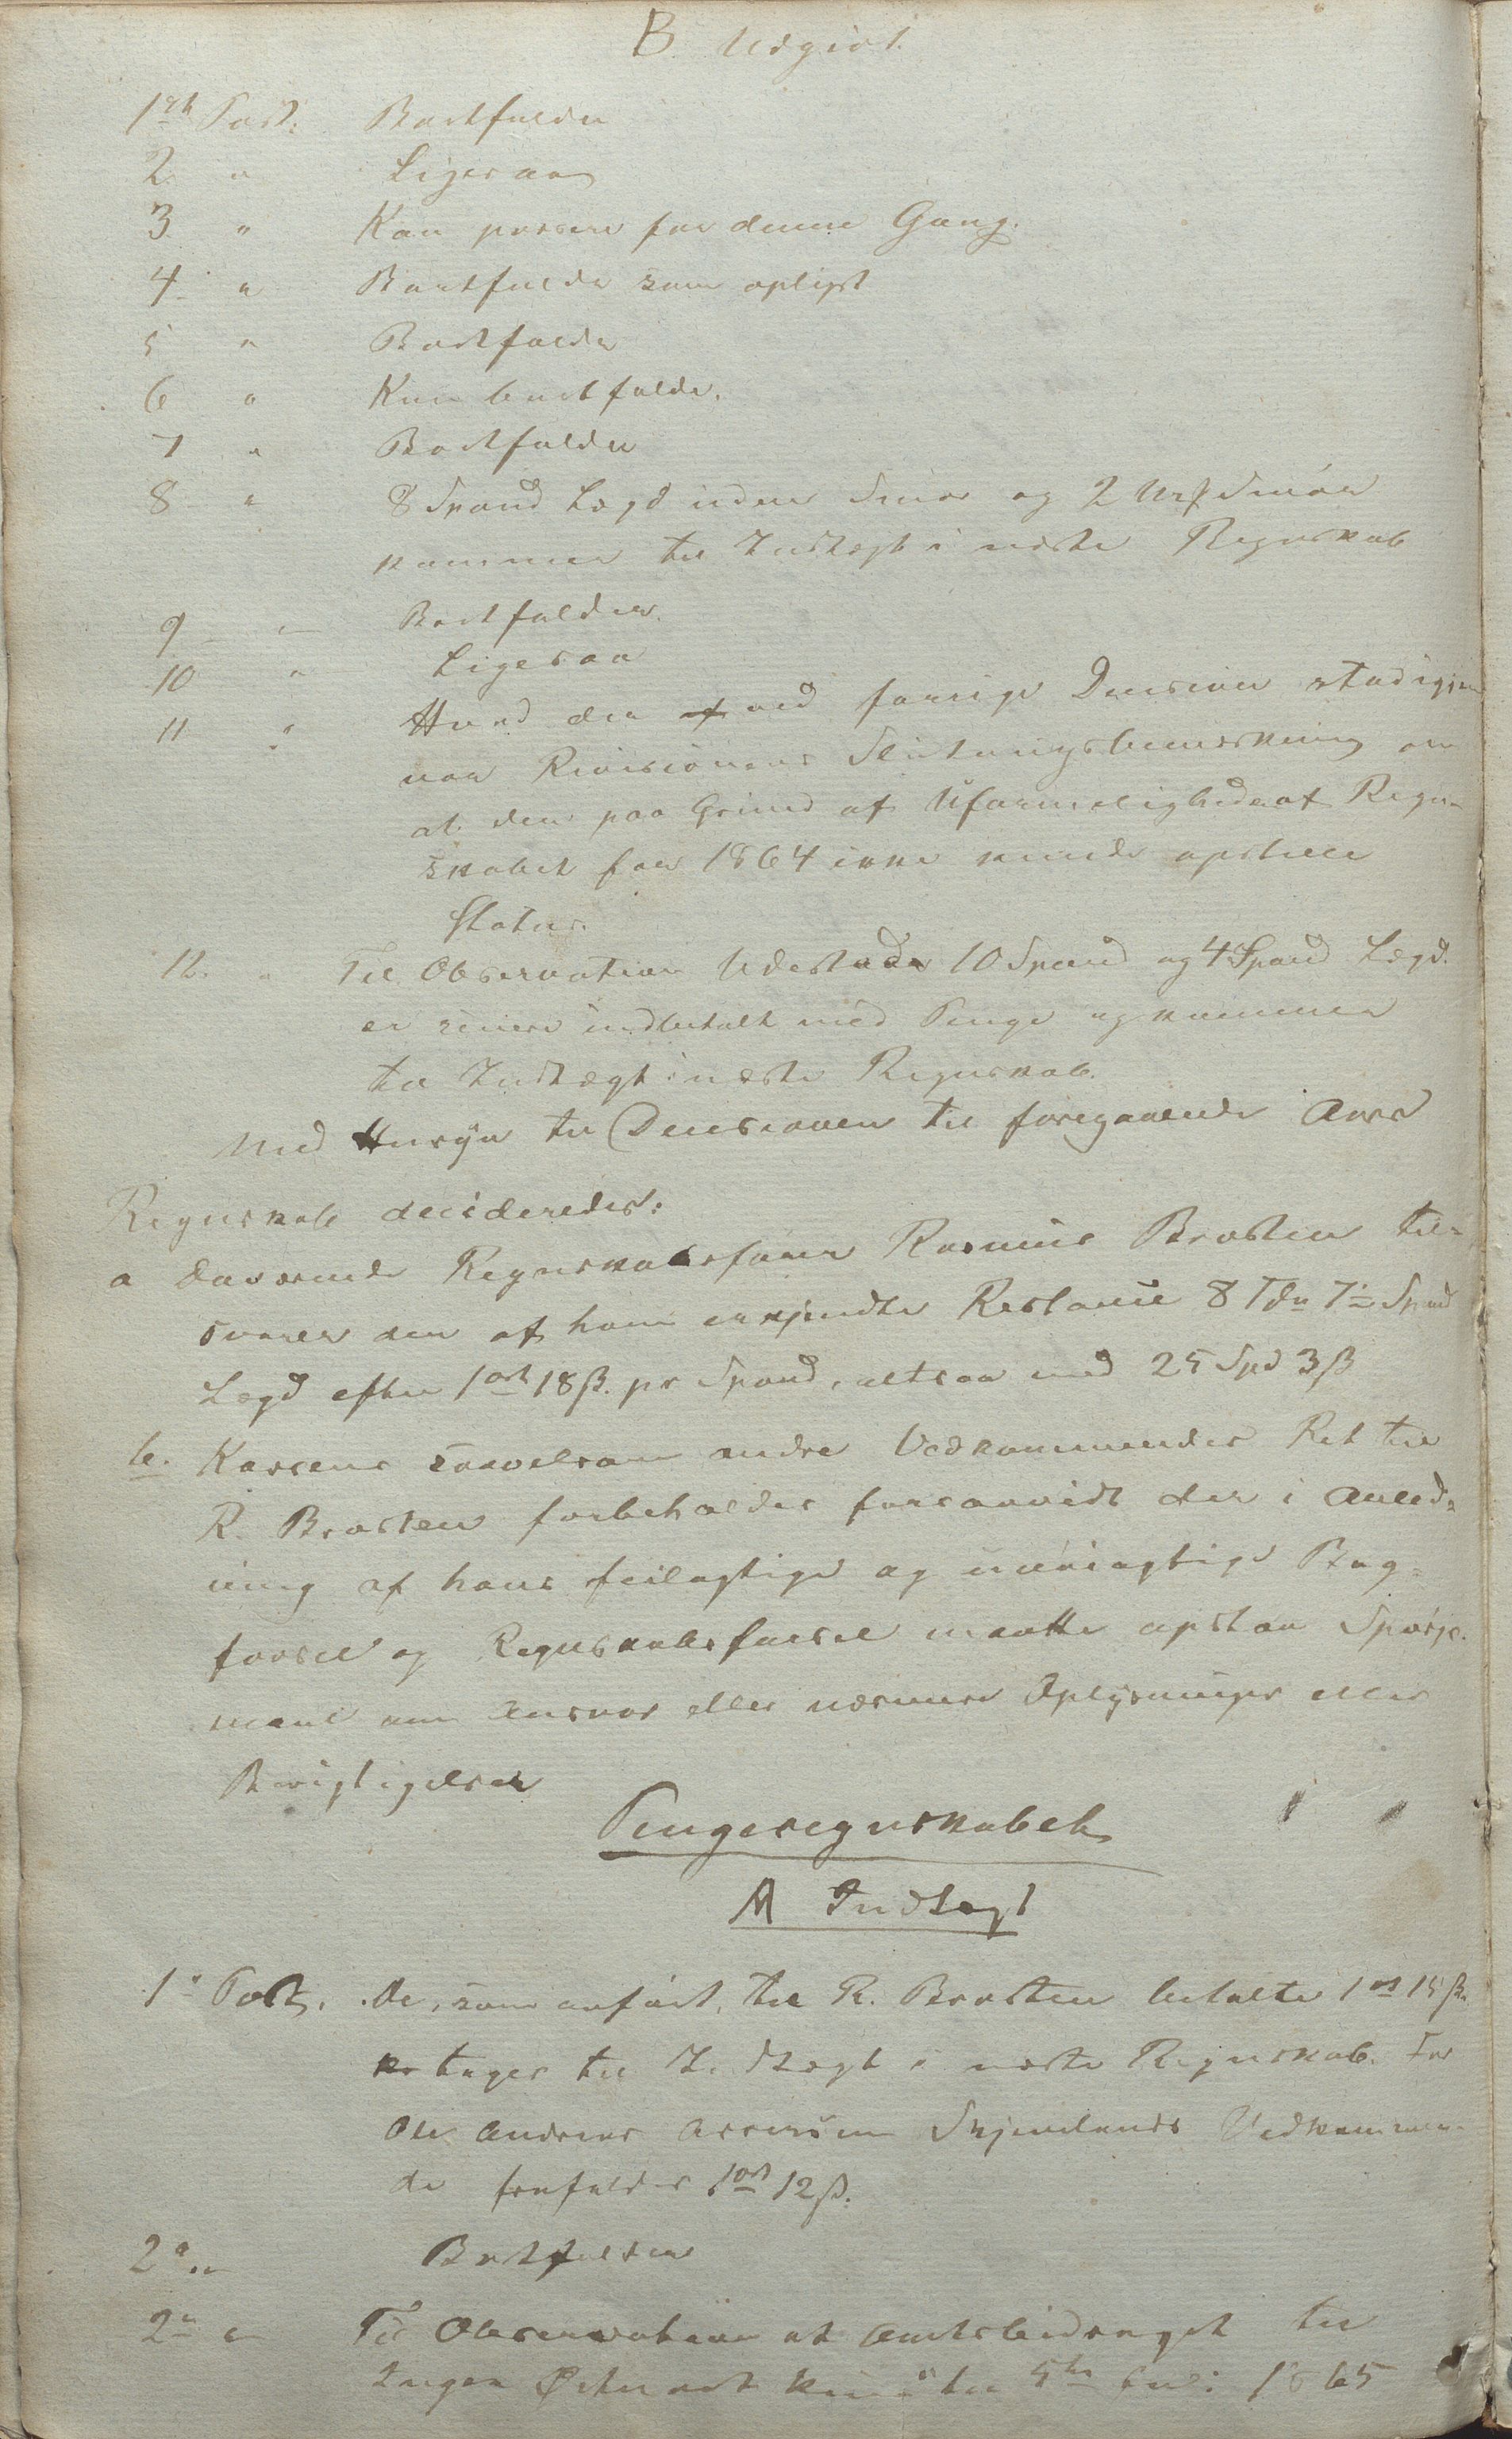 B. Udgivt.
1ste Post: Bortfalder
2 " Ligesaa
3 " Kan passere for denne Gang.
4 " Bortfalder som oplyst
5 " Bortfalder
6 " Kan bortfalde.
7 " Bortfalder
8 " 8 Spand Læg uden Smør og 2 Smør
kommer til Indtægt i næste Regnskab
9 " Bortfalder.
10 " Ligesaa
11 " Hvad der ved forrige Decision
var Revisionens Slutningsbemærkning om
at den paa Grund af Uformeligheder at Regn-
skabet for 1864 ikke kunde opstille
Status.
12. " Til Observation Udestaaende 10 Spand og 4 Spand Lægd.
er senere indbetalt med Penge og kommer
til Indtægt i næste Regnskab.
Med Hensyn til Decisionen til foregaaende Aars
Regnskab decideredes:
a daværende Regnskabsfører Rasmus Brosten til-
svarer den af ham erkjendte Restance 8 Tdr 7 Spand
Lægd efter 1 ort 18 ß. pr Spand, altsaa med 25 Spd 3 ß
b. Kassens saavelsom andre Vedkommendes Ret til
R. Brosten forbeholdes forsaavidt der i Anled-
ning af hans feilagtige og unøiagtige Bog-
førsel og Regnskabsførsel maatte opstaa Spørgs-
maal om Ansvar eller nærmere Oplysninger eller
Berigtigelser
Pengeregnskabet
A Indtægt
1" Post. De, som anført, til R. Brosten betalte 1 ort 15 ß.
tages til Indtægt i næste Regnskab. For
Ole Andreas Assersen Vedkommen-
de frafalder 1 ort 12 ß.
2" " Bortfalder
2" " Til Observation at Amtsbidraget til
1865